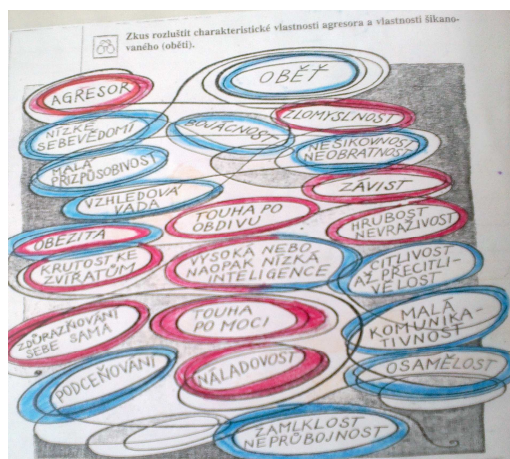 Zkus rozluštit charakteristické vlastnosti agresora a vlastnosti šikano-
vaného (oběti).
OBĚŤ
AGRESOR
ZLOMYSLNOST
NÍZKÉ
SEBEVĚDOMÍ
BOJÁCNOST
NEŠIKOVNOST
NEOBRATNOST
MALÁ
PŘIZPŮSOBIVOST
ZÁVIST
VZHLEDOVÁ
VADA
TOUHA PO
OBDIVU
HRUBOST
NEVRAŽIVOST
OBEZITA
KRUTOST KE
ZVÍŘATŮM
VYSOKÁ NEBO
NAOPAK NÍZKÁ
INTELIGENCE
CITLIVOST
AŽ PŘECITLI-
VĚLOST
ZDŮRAZŇOVÁNÍ
SEBE SAMA
TOUHA
PO MOCI
MALÁ
KOMUNIKA-
TIVNOST
PODCEŇOVÁNÍ
NÁLADOVOST
OSAMĚLOST
ZAMLKLOST
NEPRŮBOJNOST